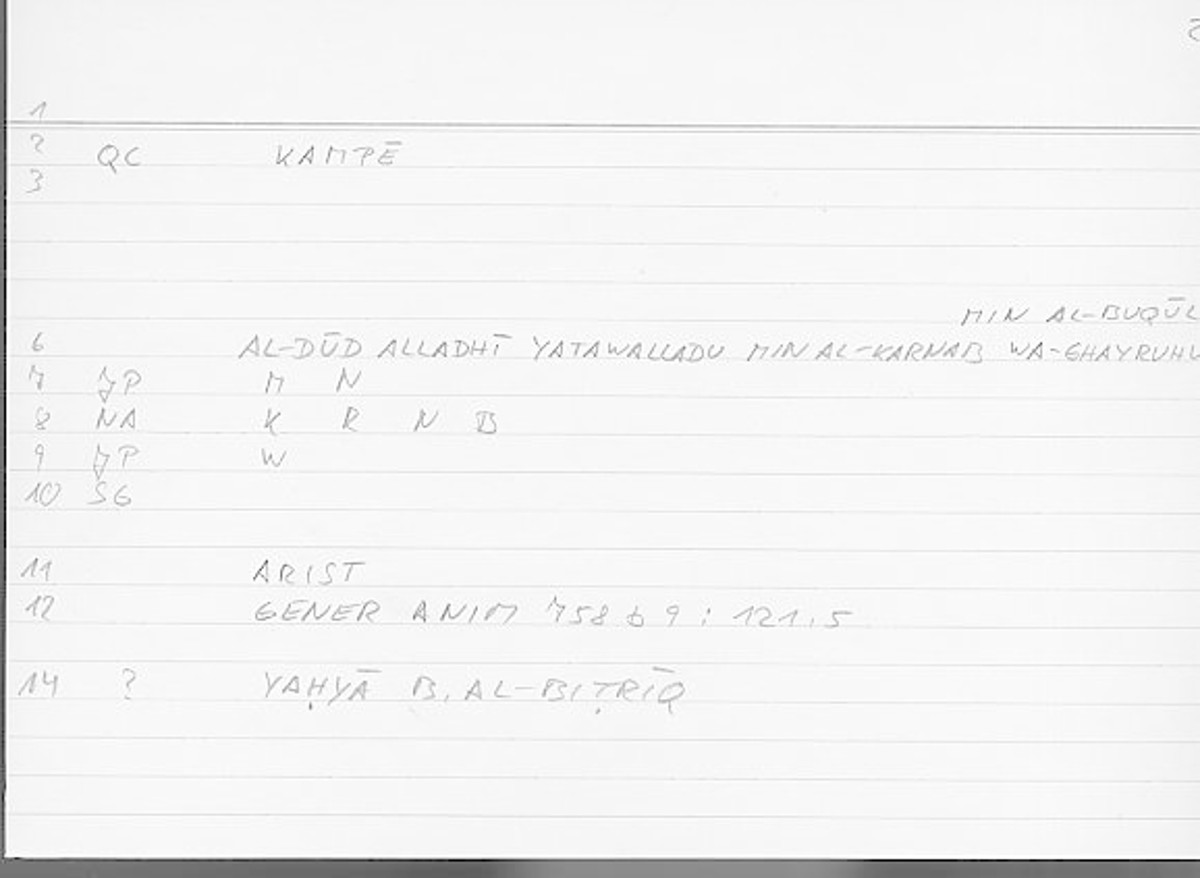 1
2 QC KAMPĒ
3
MIN AL-BUQŪL
6 AL-DŪD ALLADHĪ YATAWALLADU MIN AL-KARNAB WA-GHAYRUHU
7 JP M N
8 NA K R N B
9 JP W
10 SG
11 ARIST
12 GENER ANIM 758 b 9 : 121.5
14 ? YAḤYĀ B. AL-BIṬRĪQ